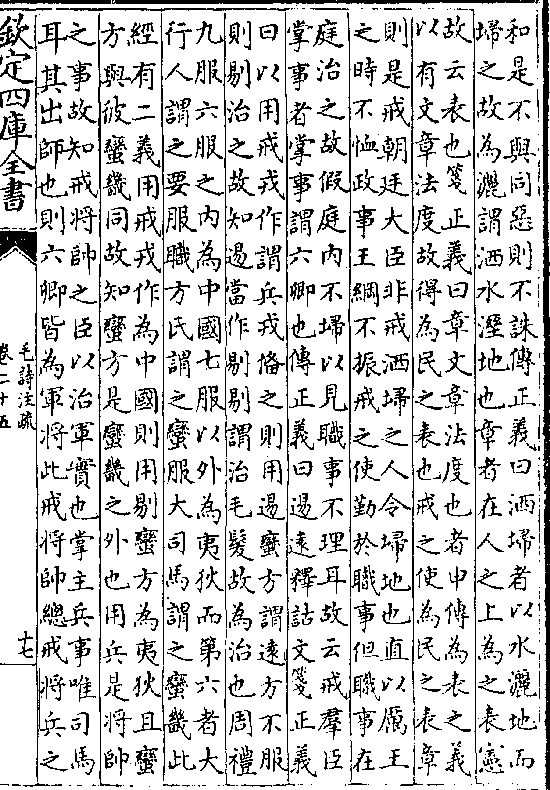 和是不與同惡則不誅傳正義曰洒埽者以水灑地而
埽之故為灑謂洒水溼地也章者在人之上為之表憲
故云表也箋正義曰章文章法度也者申傳為表之義
以有文章法度故得為民之表也戒之使為民之表章
則是戒朝廷大臣非戒洒埽之人令埽地也直以厲王
之時不恤政事王綱不振戒之使勤於職事但職事在
庭治之故假庭内不埽以見職事不理耳故云戒羣臣
掌事者掌事謂六卿也傳正義曰逷遠釋詁文箋正義
曰以用戒戎作謂兵戎備之則用逷蠻方謂遠方不服
則剔治之故知逷當作剔剔謂治毛髮故為治也周禮
九服六服之内為中國七服以外為夷狄而第六者大
行人謂之要服職方氏謂之蠻服大司馬謂之蠻畿此
經有二義用戒戎作為中國則用剔蠻方為夷狄且蠻
方與彼蠻畿同故知蠻方是蠻畿之外也用兵是將帥
之事故知戒將帥之臣以治軍實也掌主兵事唯司馬
耳其出師也則六卿皆為軍將此戒將帥總戒將兵之
欽定四庫全書
毛詩注疏
卷二十五
十七